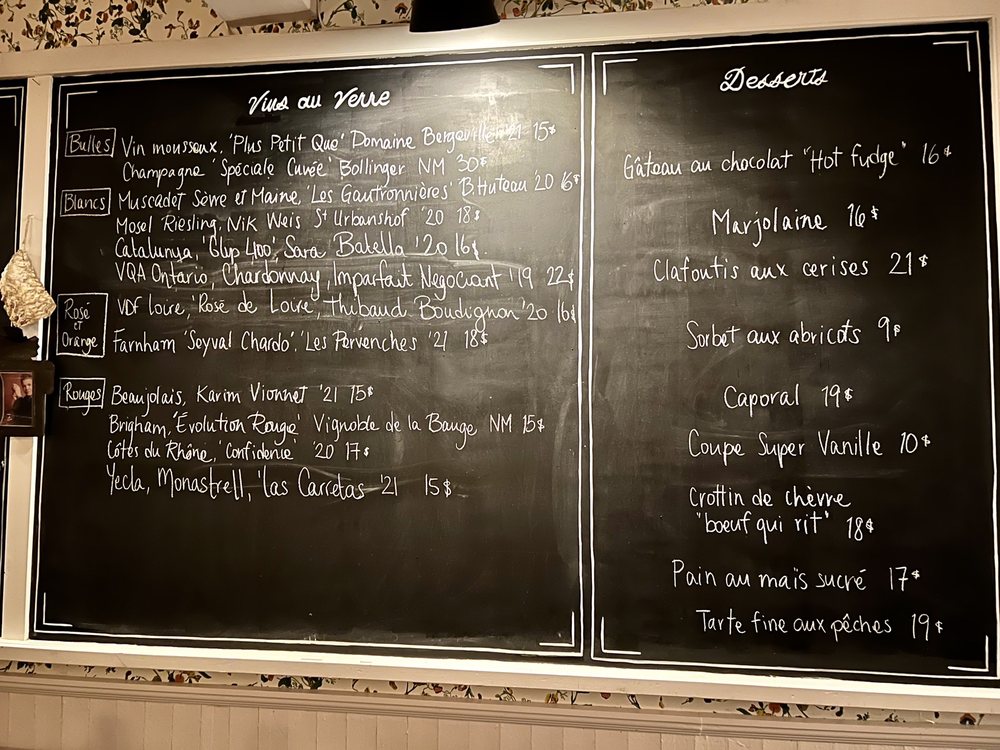 Vins au Verre
Bulles
Vin mousseux, 'Plus Petit Que' Domaine Bergeville '21 15$
Champagne 'Spéciale Cuvée' Bollinger NM 30$
Blancs
Muscadet Sèvre et Maine, 'Les Gautronnières' B.Huteau '20 16$
Mosel Riesling, Nik Weis St Urbanshof '20 18$
Catalunya, 'Glup 400', Sara Batella '20 16$
VQA Ontario, Chardonnay, Imparfait Négociant '19 22$
Rosé
et
Orange
VDF Loire, 'Rosé de Loire', Thibaud Boudignon '20 16$
Farnham 'Seyval Chardo', 'Les Pervenches '21 18$
Rouges
Beaujolais, Karim Vionnet '21 15$
Brigham, 'Évolution Rouge' Vignoble de la Bauge NM 15$
Côtes du Rhône, 'Confidence' '20 17$
Yecla, Monastrell, 'Las Carretas '21 15$
Desserts
Gâteau au chocolat "Hot fudge" 16$
Marjolaine 16$
Clafoutis aux cerises 21$
Sorbet aux abricots 9$
Caporal 19$
Coupe Super Vanille 10$
Crottin de chèvre
"boeuf qui rit" 18$
Pain au maïs sucré 17$
Tarte fine aux pêches 19$